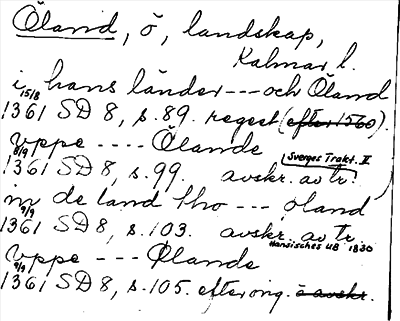 Öland, ö, landskap,
Kalmar l.
i hans länder --- och Öland
15/8
1361 SD 8, s. 89. regest (efter 1560).
vppe ---- Ölande
8/9 Sverges Trakt. II
1361 SD 8, s. 99. avskr. av tr.
in de land tho --- öland
9/9
1361 SD 8, s. 103. avskr. av tr.
Hansisches UB 1830
Vppe --- Ølande
9/9
1361 SD 8, s. 105. efter orig. o avskr.